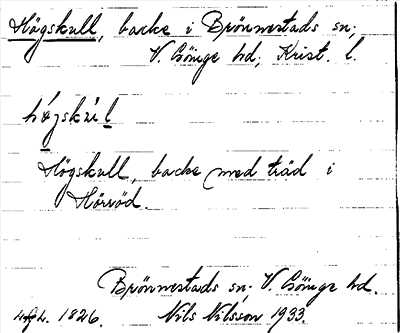 Högskull, backe i Brönnestads sn;
V. Göinge hd; Krist. l.
hǿgskúl
Högskull, backe med träd i
Hörröd.
Brönnestads sn. V. Göinge hd.
1826. Nils Nilsson 1933.